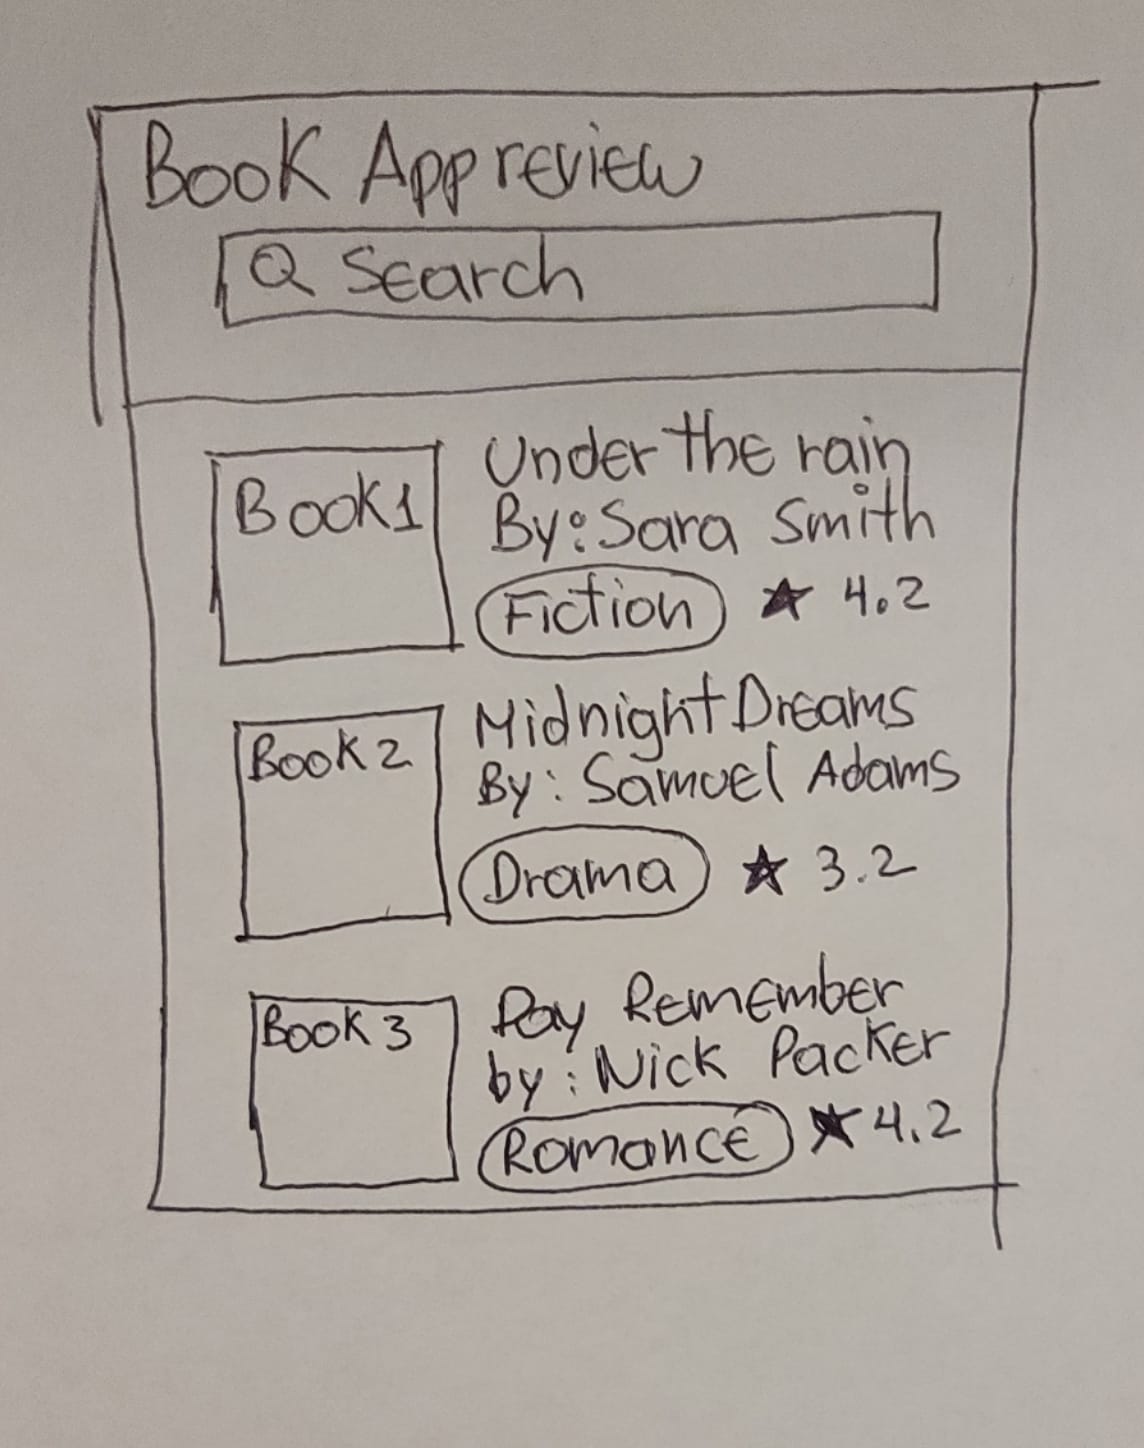 Book App review
Search
Book1
Under the rain
By: Sara Smith
Fiction ★ 4.2
Book 2
Midnight Dreams
By: Samuel Adams
Drama ★ 3.2
Book 3
Remember
by: Nick Packer
Romance ★ 4.2